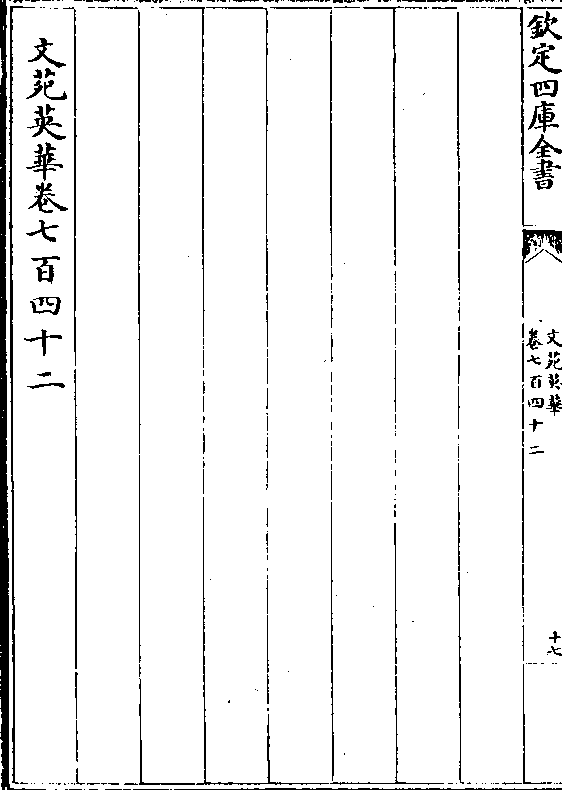 欽定四庫全書
文苑英華
卷七百四十二
十七
文苑英華卷七百四十二